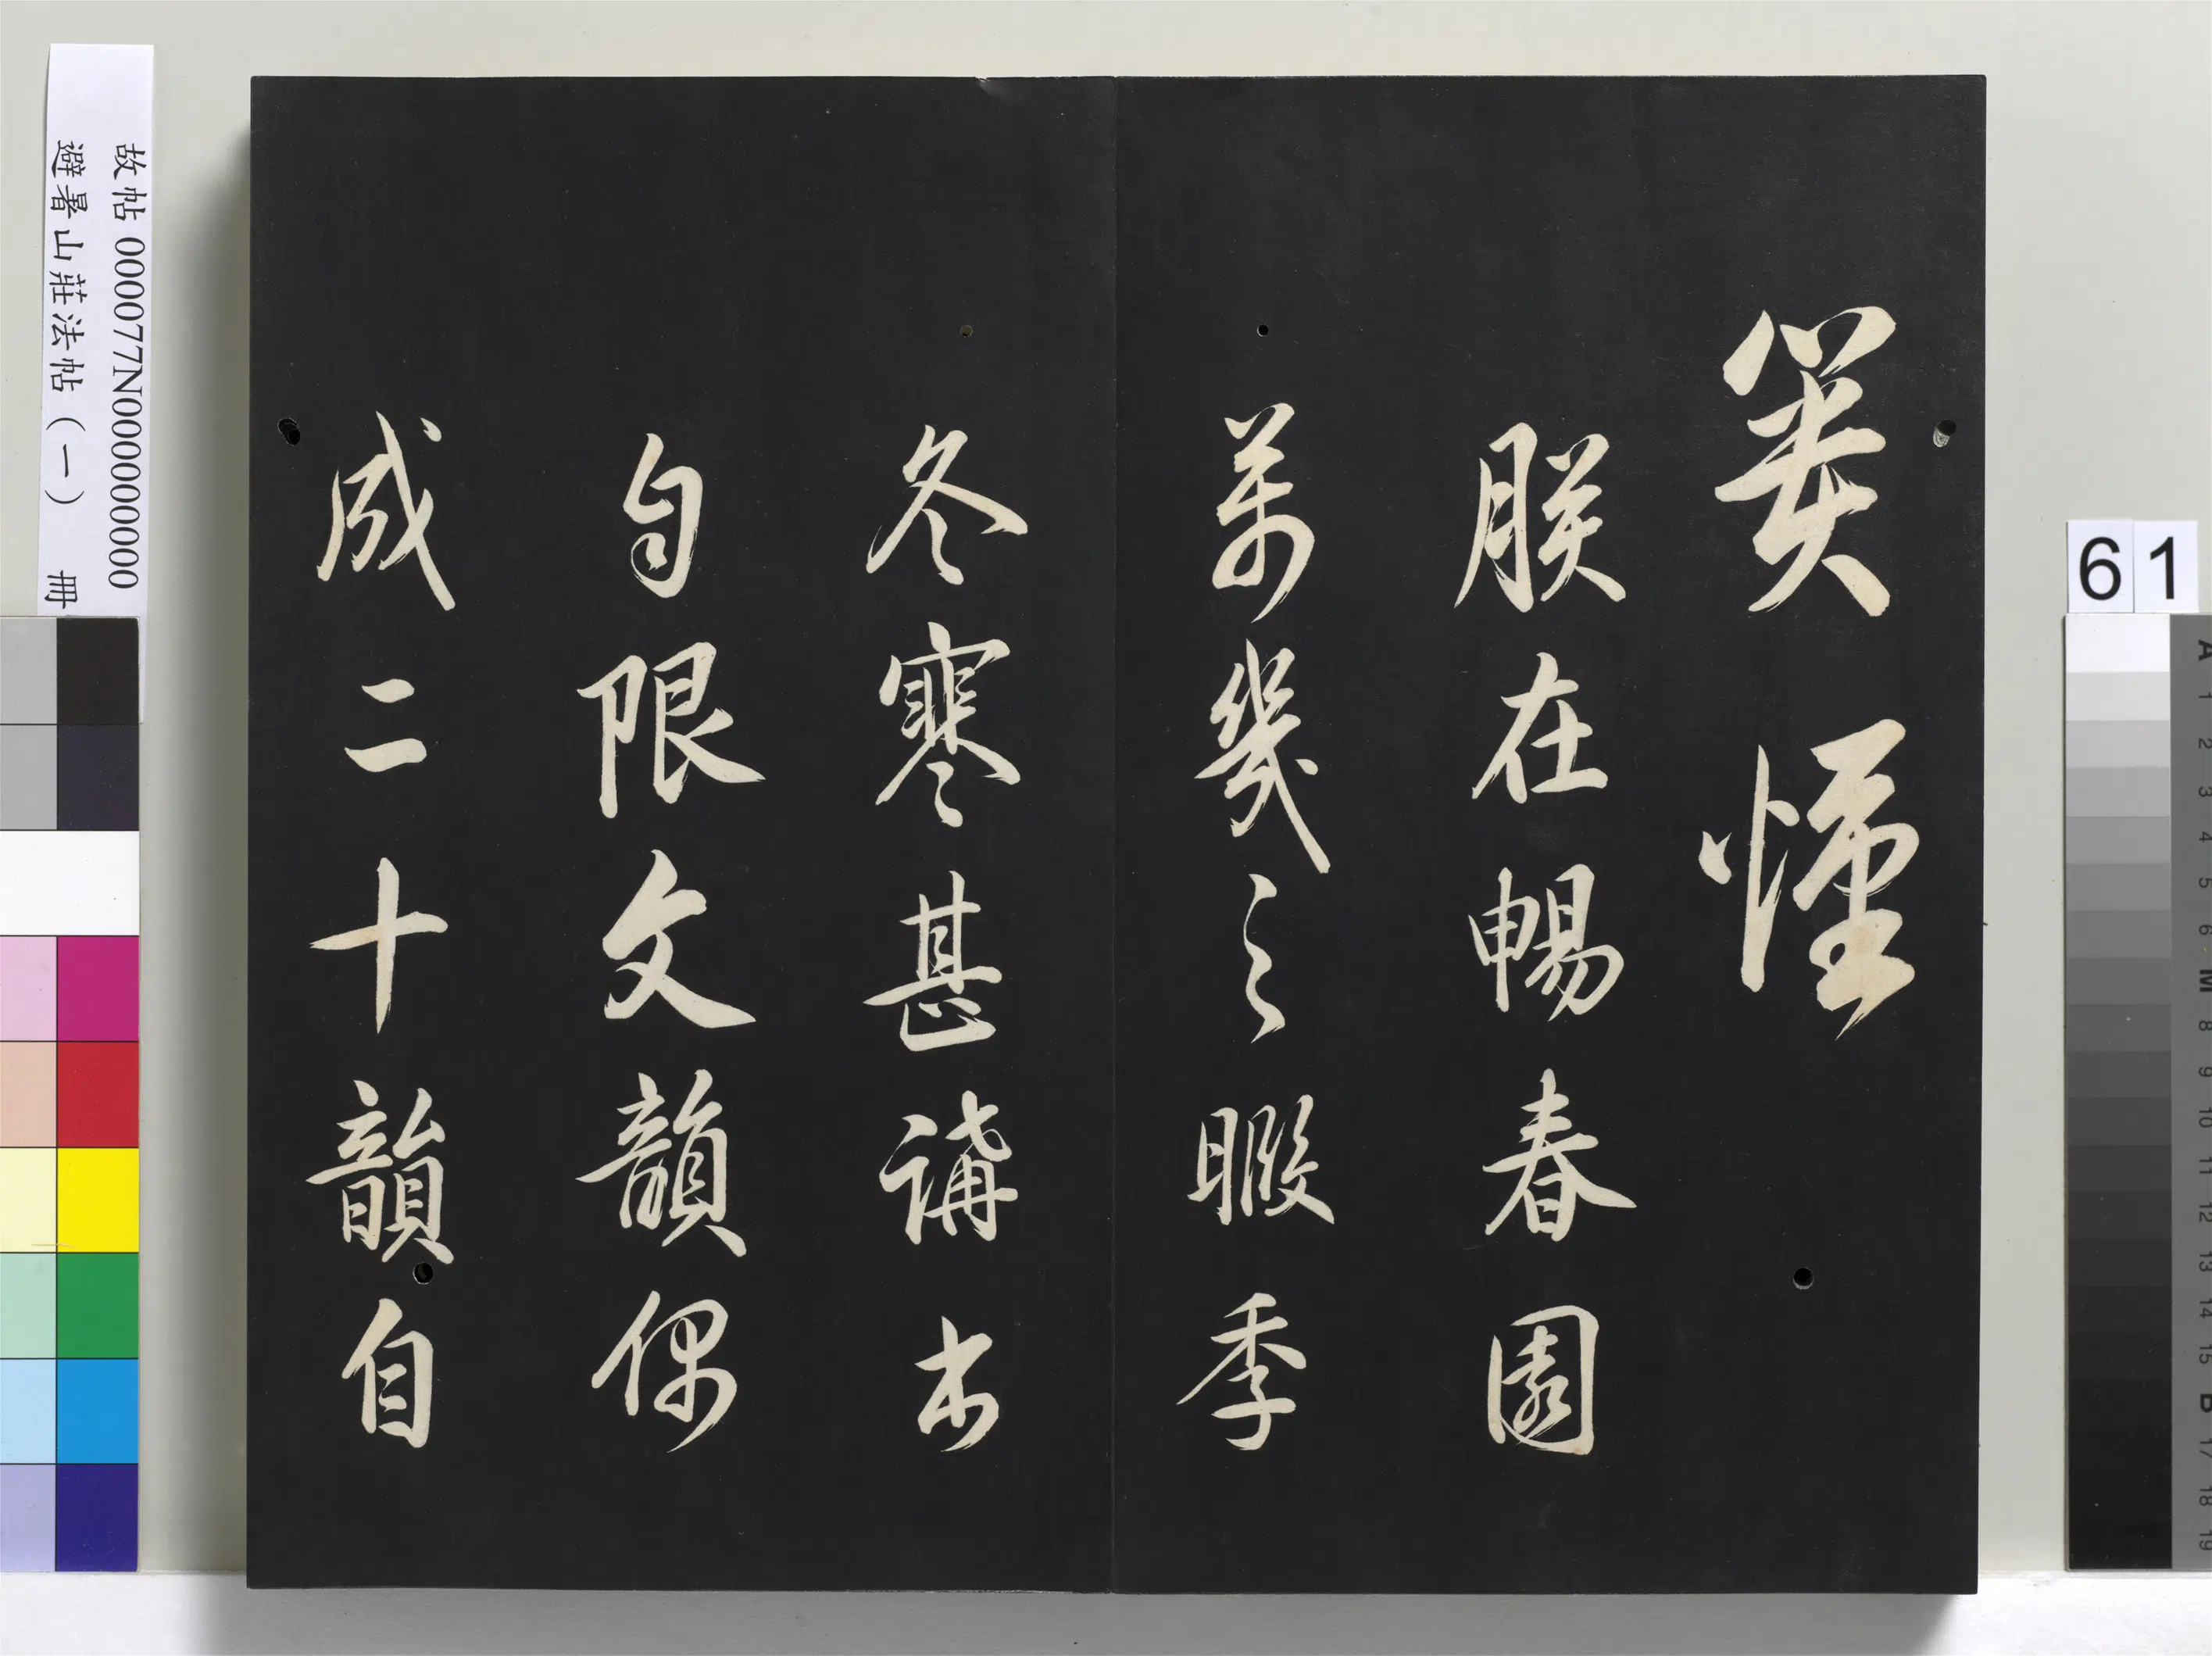 朕在暢春園
萬幾之暇季
冬寒甚講
句限文韻偶
成二十韻自
故帖 000077N000000000
避暑山莊法帖（一） 冊
61
A 1 2 3 4 5 6 M 8 9 10 11 12 13 14 15 B 17 18 19